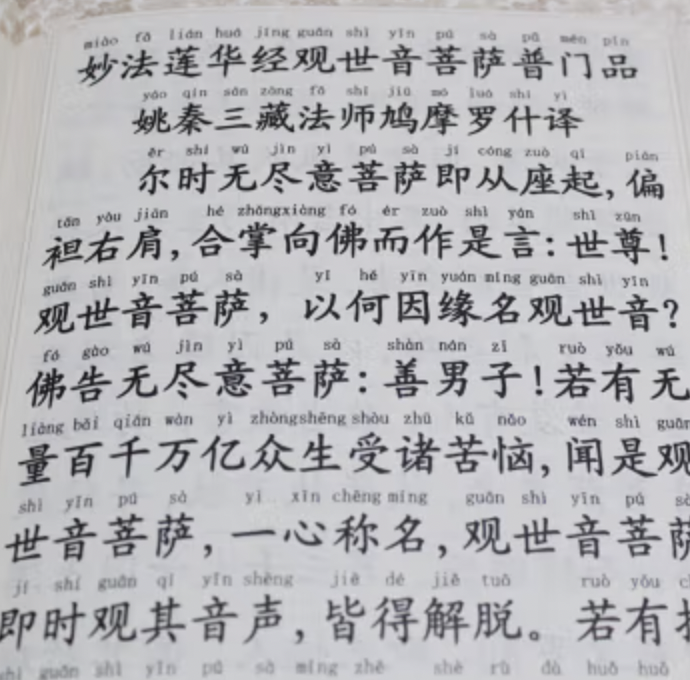 miào fǎ lián huá jīng guān shì yīn pú sà pǔ mén pǐn
妙法莲华经观世音菩萨普门品
yáo qín sān zàng fǎ shī jiū mó luó shí yì
姚秦三藏法师鸠摩罗什译
ěr shí wú jìn yì pú sà jí cóng zuò qǐ piān
尔时无尽意菩萨即从座起,偏
tǎn yòu jiān hé zhǎngxiàng fó ér zuò shì yán shì zūn
袒右肩,合掌向佛而作是言:世尊!
guān shì yīn pú sà yǐ hé yīn yuán míng guān shì yīn
观世音菩萨,以何因缘名观世音?
fó gào wú jìn yì pú sà shàn nán zǐ ruò yǒu wú
佛告无尽意菩萨:善男子!若有无
liàng bǎi qiān wàn yì zhòngshēng shòu zhū kǔ nǎo wén shì guān
量百千万亿众生受诸苦恼,闻是观
shì yīn pú sà yì xīn chēng míng guān shì yīn pú sà
世音菩萨,一心称名,观世音菩萨
jí shí guān qí yīn shēng jiē dé jiě tuō ruò yǒu
即时观其音声,皆得解脱。若有
shì guān shì yīn pú sà míng zhě shè rù dà huǒ huǒ